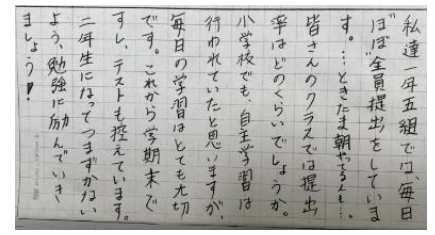 私達一年五組では、毎日
ほぼ全員提出をしていま
す。…ときたま朝やる人も…。
皆さんのクラスでは提出
率はどのくらいでしょうか。
小学校でも、自主学習は
行われていたと思いますが、
毎日の学習はとても大切
です。これから学期末で
すし、テストも控えています。
二年生になってつまずかない
よう、勉強に励んでいき
ましょう！